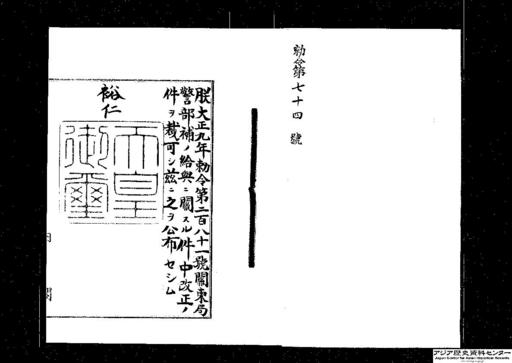 勅令第七十四號
朕大正九年勅令第二百八十一號關東局
警部補ノ給與ニ關スル件中改正ノ
件ヲ裁可シ玆ニ之ヲ公布セシム
裕仁
天皇
御璽
内閣
アジア歴史資料センター
Japan Center for Asian Historical Records